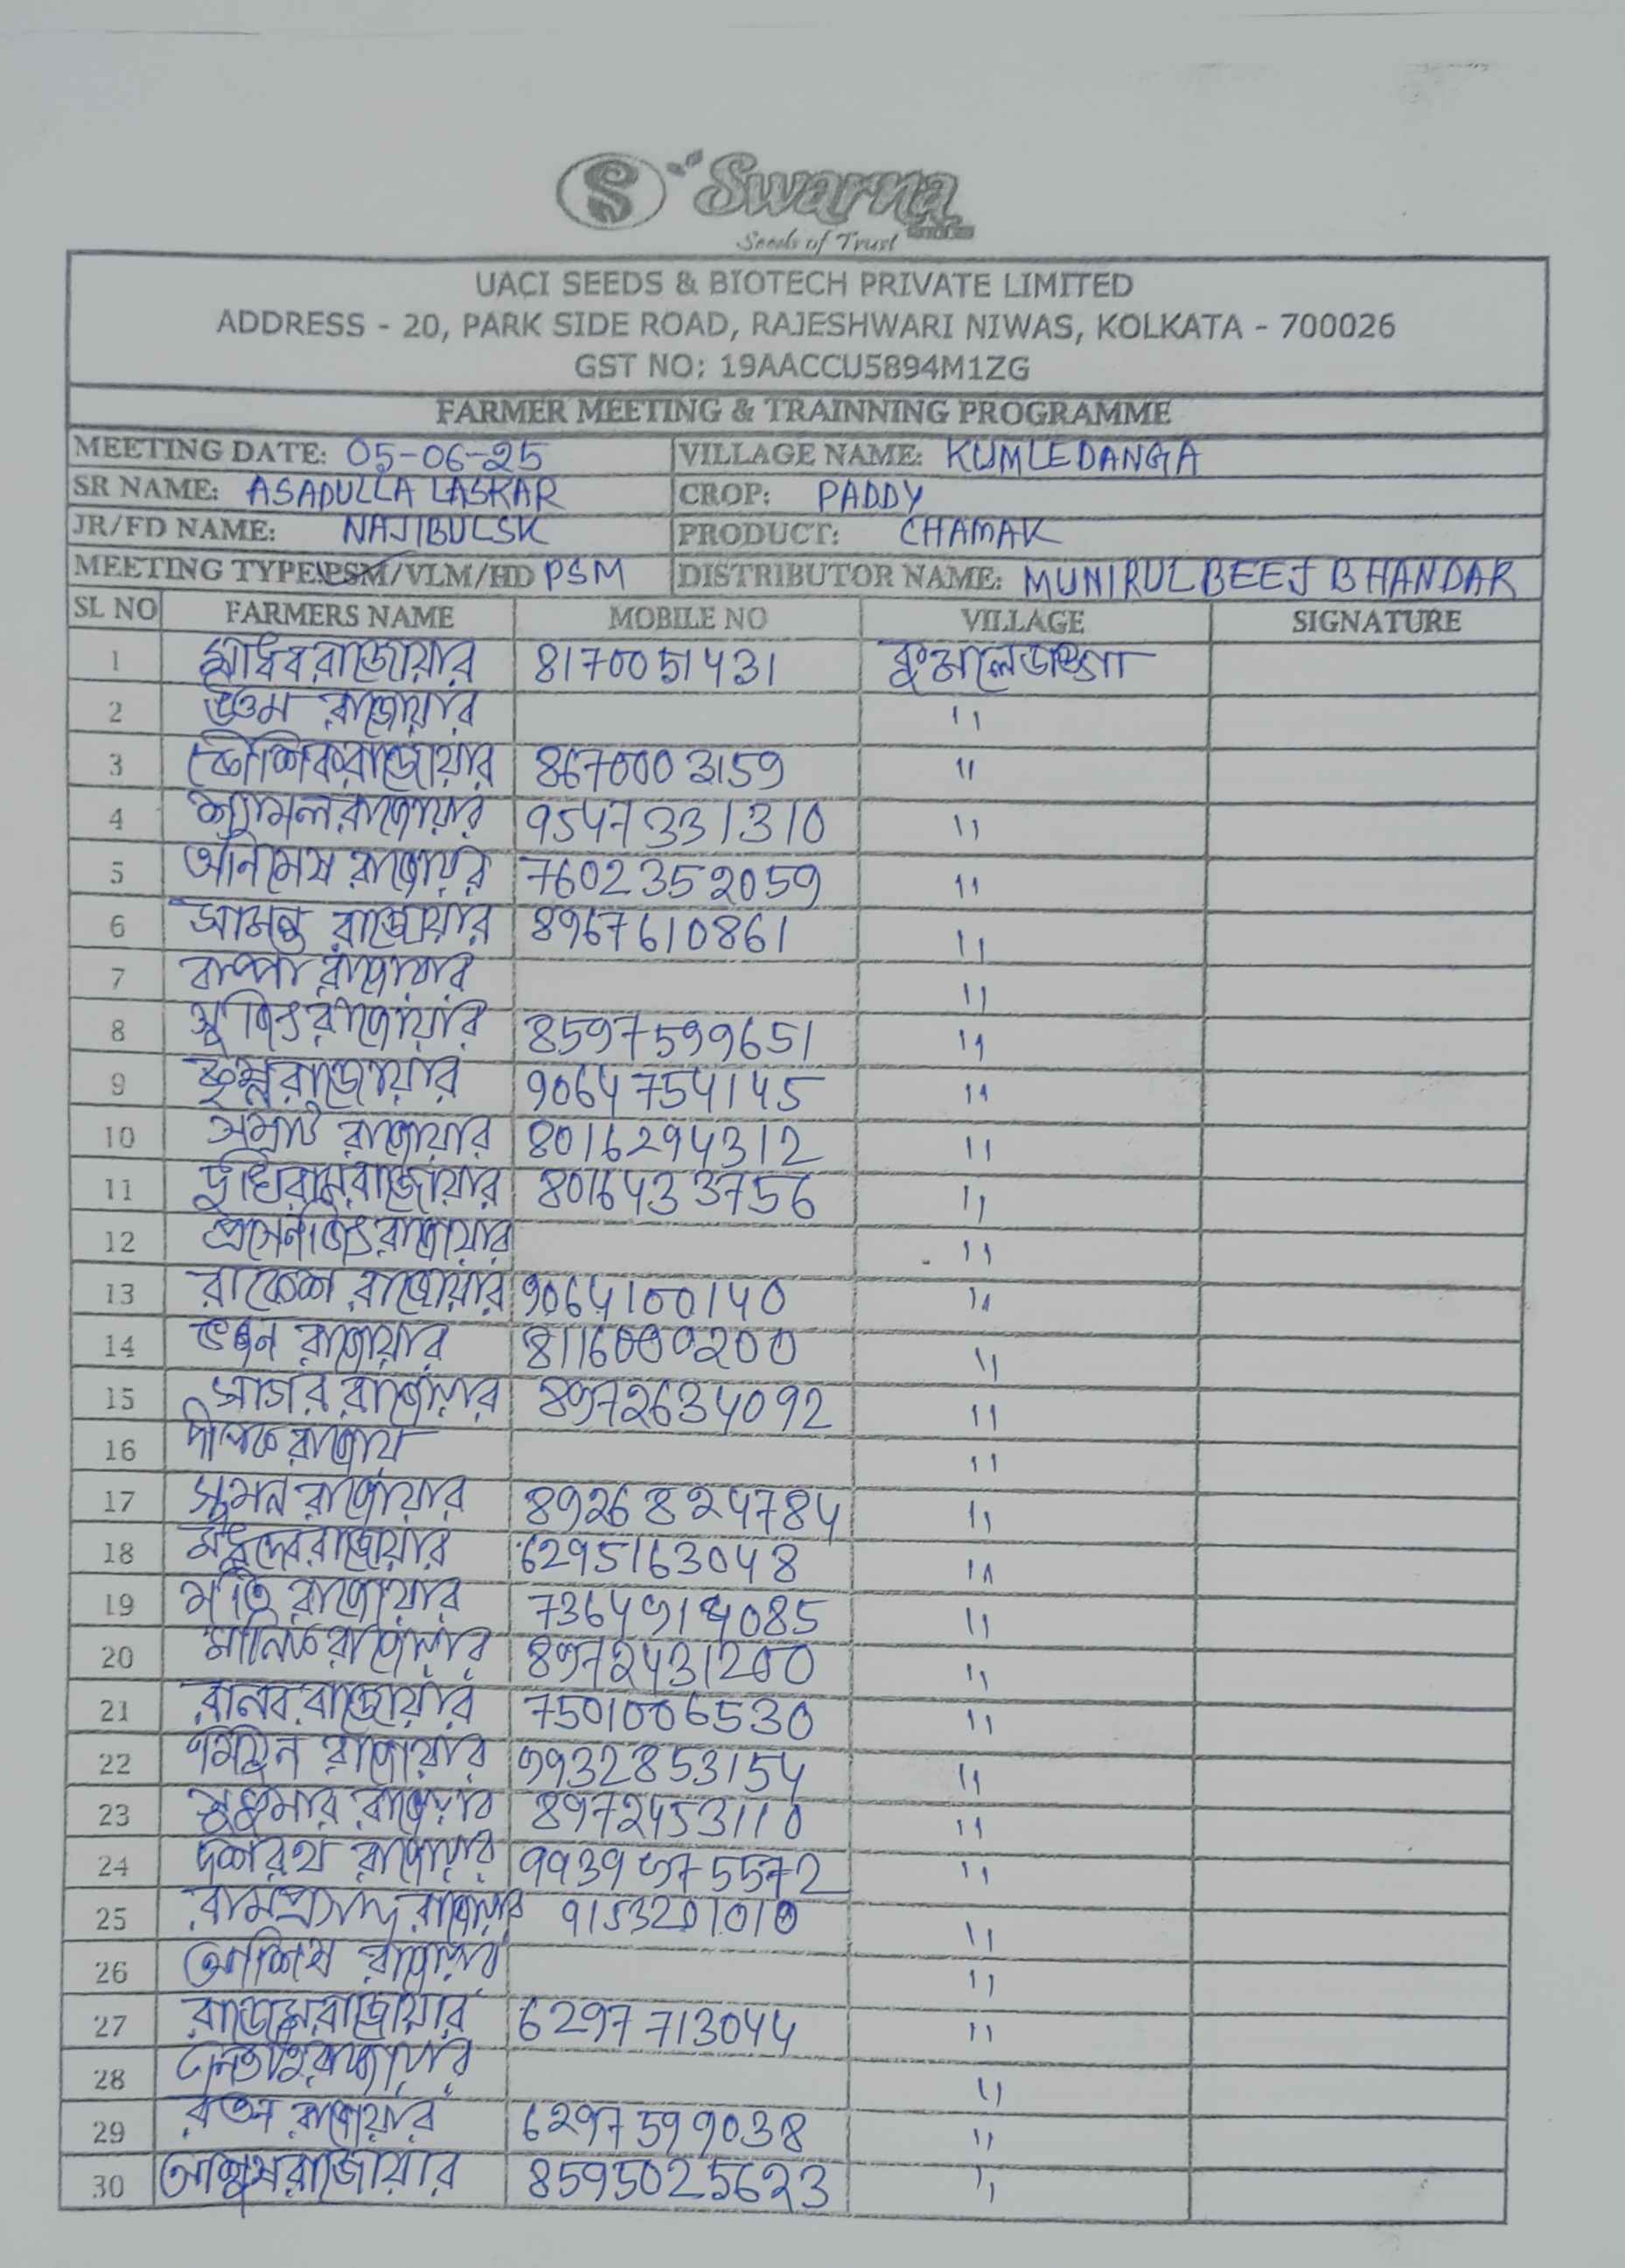 S Swarna
Seeds of Trust
UACI SEEDS & BIOTECH PRIVATE LIMITED
ADDRESS - 20, PARK SIDE ROAD, RAJESHWARI NIWAS, KOLKATA - 700026
GST NO: 19AACCU5894M1ZG
FARMER MEETING & TRAINNING PROGRAMME
MEETING DATE: 05-06-25 VILLAGE NAME: KUMLEDANGA
SR NAME: ASADULLA LASKAR CROP: PADDY
JR/FD NAME: NAJIBUL SK PRODUCT: CHAMAK
MEETING TYPE: PSM/VLM/HD PSM DISTRIBUTOR NAME: MUNIRUL BEEJ BHANDAR
SL NO FARMERS NAME MOBILE NO VILLAGE SIGNATURE
1 মাধব রাজোয়ার 8170051431 কুমলেডাঙ্গা
2 উত্তম রাজোয়ার "
3 কৌশিক রাজোয়ার 8670003159 "
4 শ্যামল রাজোয়ার 9547331310 "
5 অনিমেষ রাজোয়ার 7602352059 "
6 সামন্ত রাজোয়ার 8967610861 "
7 বাপ্পা রাজোয়ার "
8 সুজিত রাজোয়ার 8597599651 "
9 কৃষ্ণ রাজোয়ার 9064754145 "
10 সম্রাট রাজোয়ার 8016294312 "
11 দুখিরাম রাজোয়ার 8016433756 "
12 প্রসেনজিৎ রাজোয়ার "
13 রাকেশ রাজোয়ার 9064100140 "
14 রাজোয়ার "
15 সাগর রাজোয়ার 8972634092 "
16 দীপক রাজোয় "
17 সুমন রাজোয়ার 8926824784 "
18 রাজোয়ার 6295163048 "
19 মতি রাজোয়ার "
20 মানিক রাজোয়ার 8972431200 "
21 রাজোয়ার 7501006530 "
22 রাজোয়ার 9932853154 "
23 সুকুমার রাজোয়ার 8972453110 "
24 দশরথ রাজোয়ার "
25 রামপ্রসাদ রাজোয়ার 9153201010 "
26 আশিষ রাজোয়ার "
27 রাজোয়ার 6297713044 "
28 রাজোয়ার "
29 রতন রাজোয়ার 6297599038 "
30 রাজোয়ার 8595025623 "